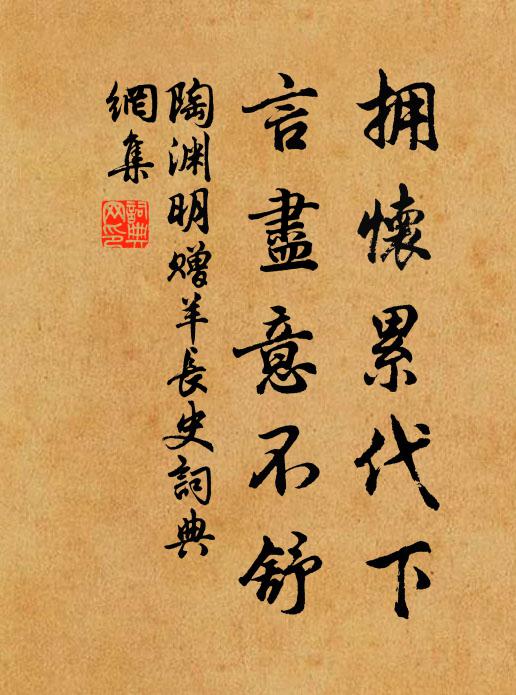 拥懷累代下
言盡意不舒
陶渊明赠羊長史詞典
網集
詞典
网印